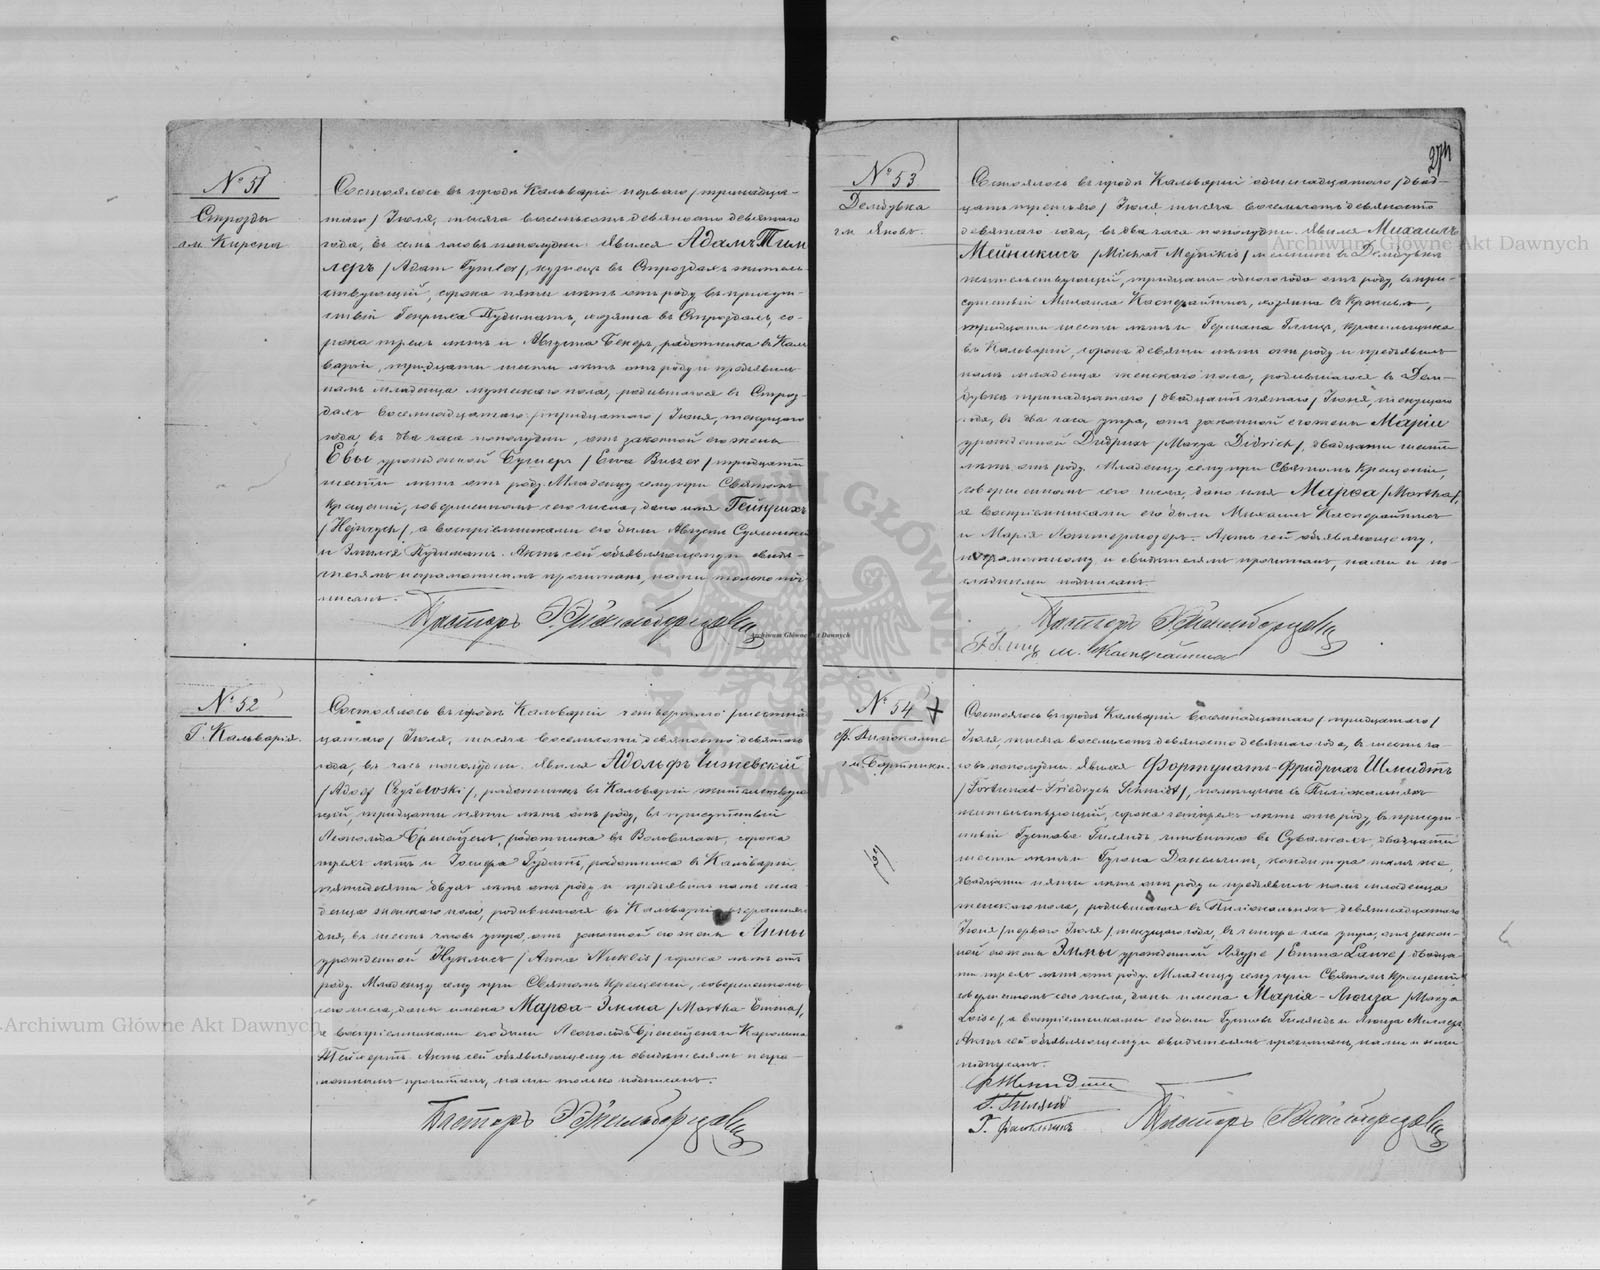 № 51
Строзды
гм. Кирсна
Состоялось въ городѣ Кальваріи перваго /тринадца-
таго/ Іюля, тысяча восемьсотъ девяносто девятаго
года, въ семь часовъ пополудни. Явился Адамъ Тим
леръ /Adam Tymler/, кузнецъ въ Строздахъ житель-
ствующій, сорока пяти лѣтъ отъ роду, въ присут-
ствіи Генриха Пудимата, хозяина въ Строздахъ, со-
рока трехъ лѣтъ и Августа Бекеръ, работника въ Каль
варіи, тридцати шести лѣтъ отъ роду и предъявилъ
намъ младенца мужескаго пола, родившагося въ Строз-
дахъ восемнадцатаго /тридцатаго/ Іюня, текущаго
года, въ два часа пополудни, отъ законной его жены
Евы урожденной Бушеръ /Ewa Buszer/ тридцати
шести лѣтъ отъ роду. Младенцу сему при Святомъ
Крещеніи, совершенномъ сего числа, дано имя Гейнрихъ
/Hejnrych/, а воспріемниками его были Августъ
и Эмилія Пудиматъ. Актъ сей объявляющему и свидѣ-
телямъ неграмотнымъ прочитанъ, нами только под-
писанъ.
Пасторъ
№ 52
Г. Кальварія.
Состоялось въ городѣ Кальваріи четвертаго /шестнад
цатаго/ Іюля, тысяча восемьсотъ девяносто девятаго
года, въ часъ пополудни. Явился Адольфъ Чижевскій
/Adolf Czyżewski/, работникъ въ Кальваріи жительствую
щій, тридцати пяти лѣтъ отъ роду, въ присутствіи
Леопольда работника въ сорока
трехъ лѣтъ и Іосифа Гудатъ, работника въ Кальваріи,
пятидесяти двухъ лѣтъ отъ роду и предъявилъ намъ мла-
денца женскаго пола, родившагося въ Кальваріи вчерашняго
дня, въ шесть часовъ утра, отъ законной его жены Анны
урожденной Нуклисъ /Anna Nuklis/ сорока лѣтъ отъ
роду. Младенцу сему при Святомъ Крещеніи, совершенномъ
сего числа, даны имена Марѳа-Эмма /Martha Emma/,
а воспріемниками его были Леопольдъ и Каролина
Актъ сей объявляющему и свидѣтелямъ негра-
мотнымъ прочитанъ, нами только подписанъ.
Пасторъ
274
№ 53
Дембувка
гм. Яновъ.
Состоялось въ городѣ Кальваріи одиннадцатаго /двад-
цать третьяго/ Іюля тысяча восемьсотъ девяносто
девятаго года, въ два часа пополудни. Явился Михаилъ
Мейникисъ /Michał Mejnikis/ въ Дембувкѣ
жительствующій, тридцати одного года отъ роду, въ при-
сутствіи Михаила Касперайтиса, хозяина въ
тридцати шести лѣтъ и Германа Глицъ, красильщика
въ Кальваріи, сорока девяти лѣтъ отъ роду и предъявилъ
намъ младенца женскаго пола, родившагося въ Дем-
бувкѣ тринадцатаго /двадцать пятаго/ Іюня, текущаго
года, въ два часа утра, отъ законной его жены Маріи
урожденной Дидрихъ /Marya Didrich/, двадцати шести
лѣтъ отъ роду. Младенцу сему при Святомъ Крещеніи,
совершенномъ сего числа, дано имя Марѳа /Martha/,
а воспріемниками его были Михаилъ Касперайтисъ
и Марія Актъ сей объявляющему,
неграмотному и свидѣтелямъ прочитанъ, нами и по-
слѣдними подписанъ.
Пасторъ
Г. Глицъ М. Касперайтисъ
№ 54
ф.
гм. Бартники.
Состоялось въ городѣ Кальваріи восемнадцатаго /тридцатаго/
Іюля, тысяча восемьсотъ девяносто девятаго года, въ шесть ча-
совъ пополудни. Явился Фортунатъ-Фридрихъ Шмидтъ
/Fortunat-Friedrych Schmidt/, помѣщикъ въ
жительствующій, сорока четырехъ лѣтъ отъ роду, въ присут-
ствіи Густава Гиляндъ чиновника въ Сувалкахъ, двадцати
шести лѣтъ и Гугона кондитера тамъ же,
двадцати пяти лѣтъ отъ роду и предъявилъ намъ младенца
женскаго пола, родившагося въ девятнадцатаго
Іюня /перваго Іюля/ текущаго года, въ четыре часа утра, отъ закон-
ной его жены Эммы урожденной Лауре /Emma Laure/ двадца-
ти трехъ лѣтъ отъ роду. Младенцу сему при Святомъ Крещеніи
совершенномъ сего числа, даны имена Марія-Люиза /Marya
Loise/, а воспріемниками его были Густавъ Гиляндъ и Люиза Миллеръ.
Актъ сей объявляющему и свидѣтелямъ прочитанъ, нами и ими
подписанъ.
Ф Шмидтъ
Г. Гиляндъ
Г.
Пасторъ
Archiwum Główne Akt Dawnych
Archiwum Główne Akt Dawnych
Archiwum Główne Akt Dawnych